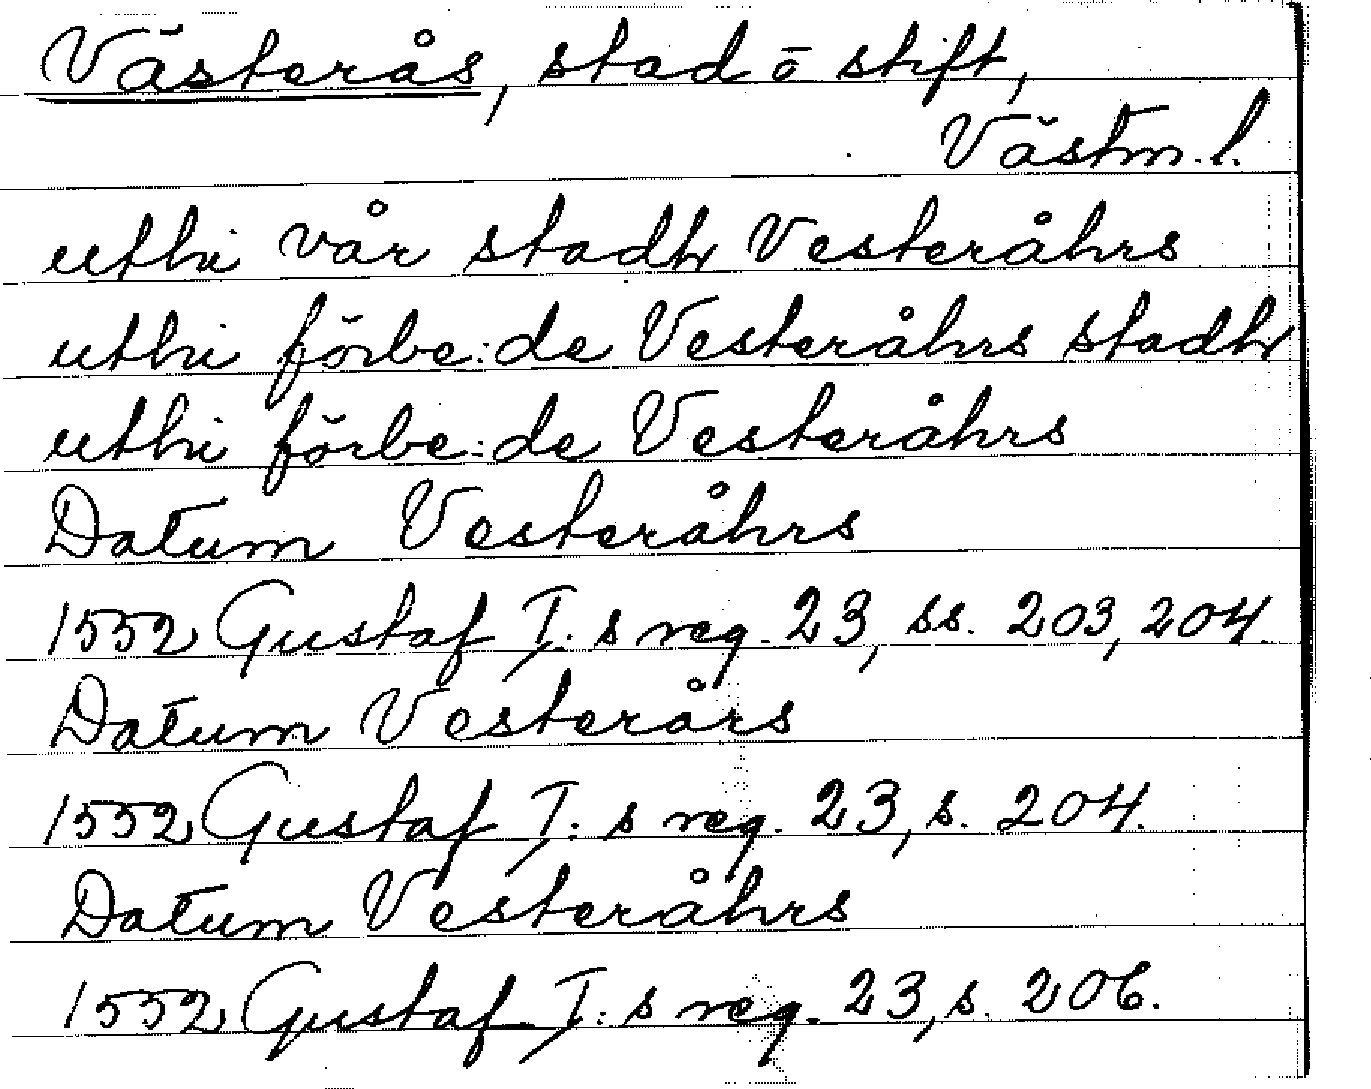 Västerås, stad ō stift,
Västm. l.
uthi vår stadh Vesteråhrs
uthi förbe:de Vesteråhrs stadh
uthi förbe:de Vesteråhrs
Datum Vesteråhrs
1552 Gustaf I: s reg. 23, ss. 203, 204.
Datum Vesterårs
1552 Gustaf I: s reg. 23, s. 204.
Datum Vesteråhrs
1552 Gustaf I: s reg. 23, s. 206.